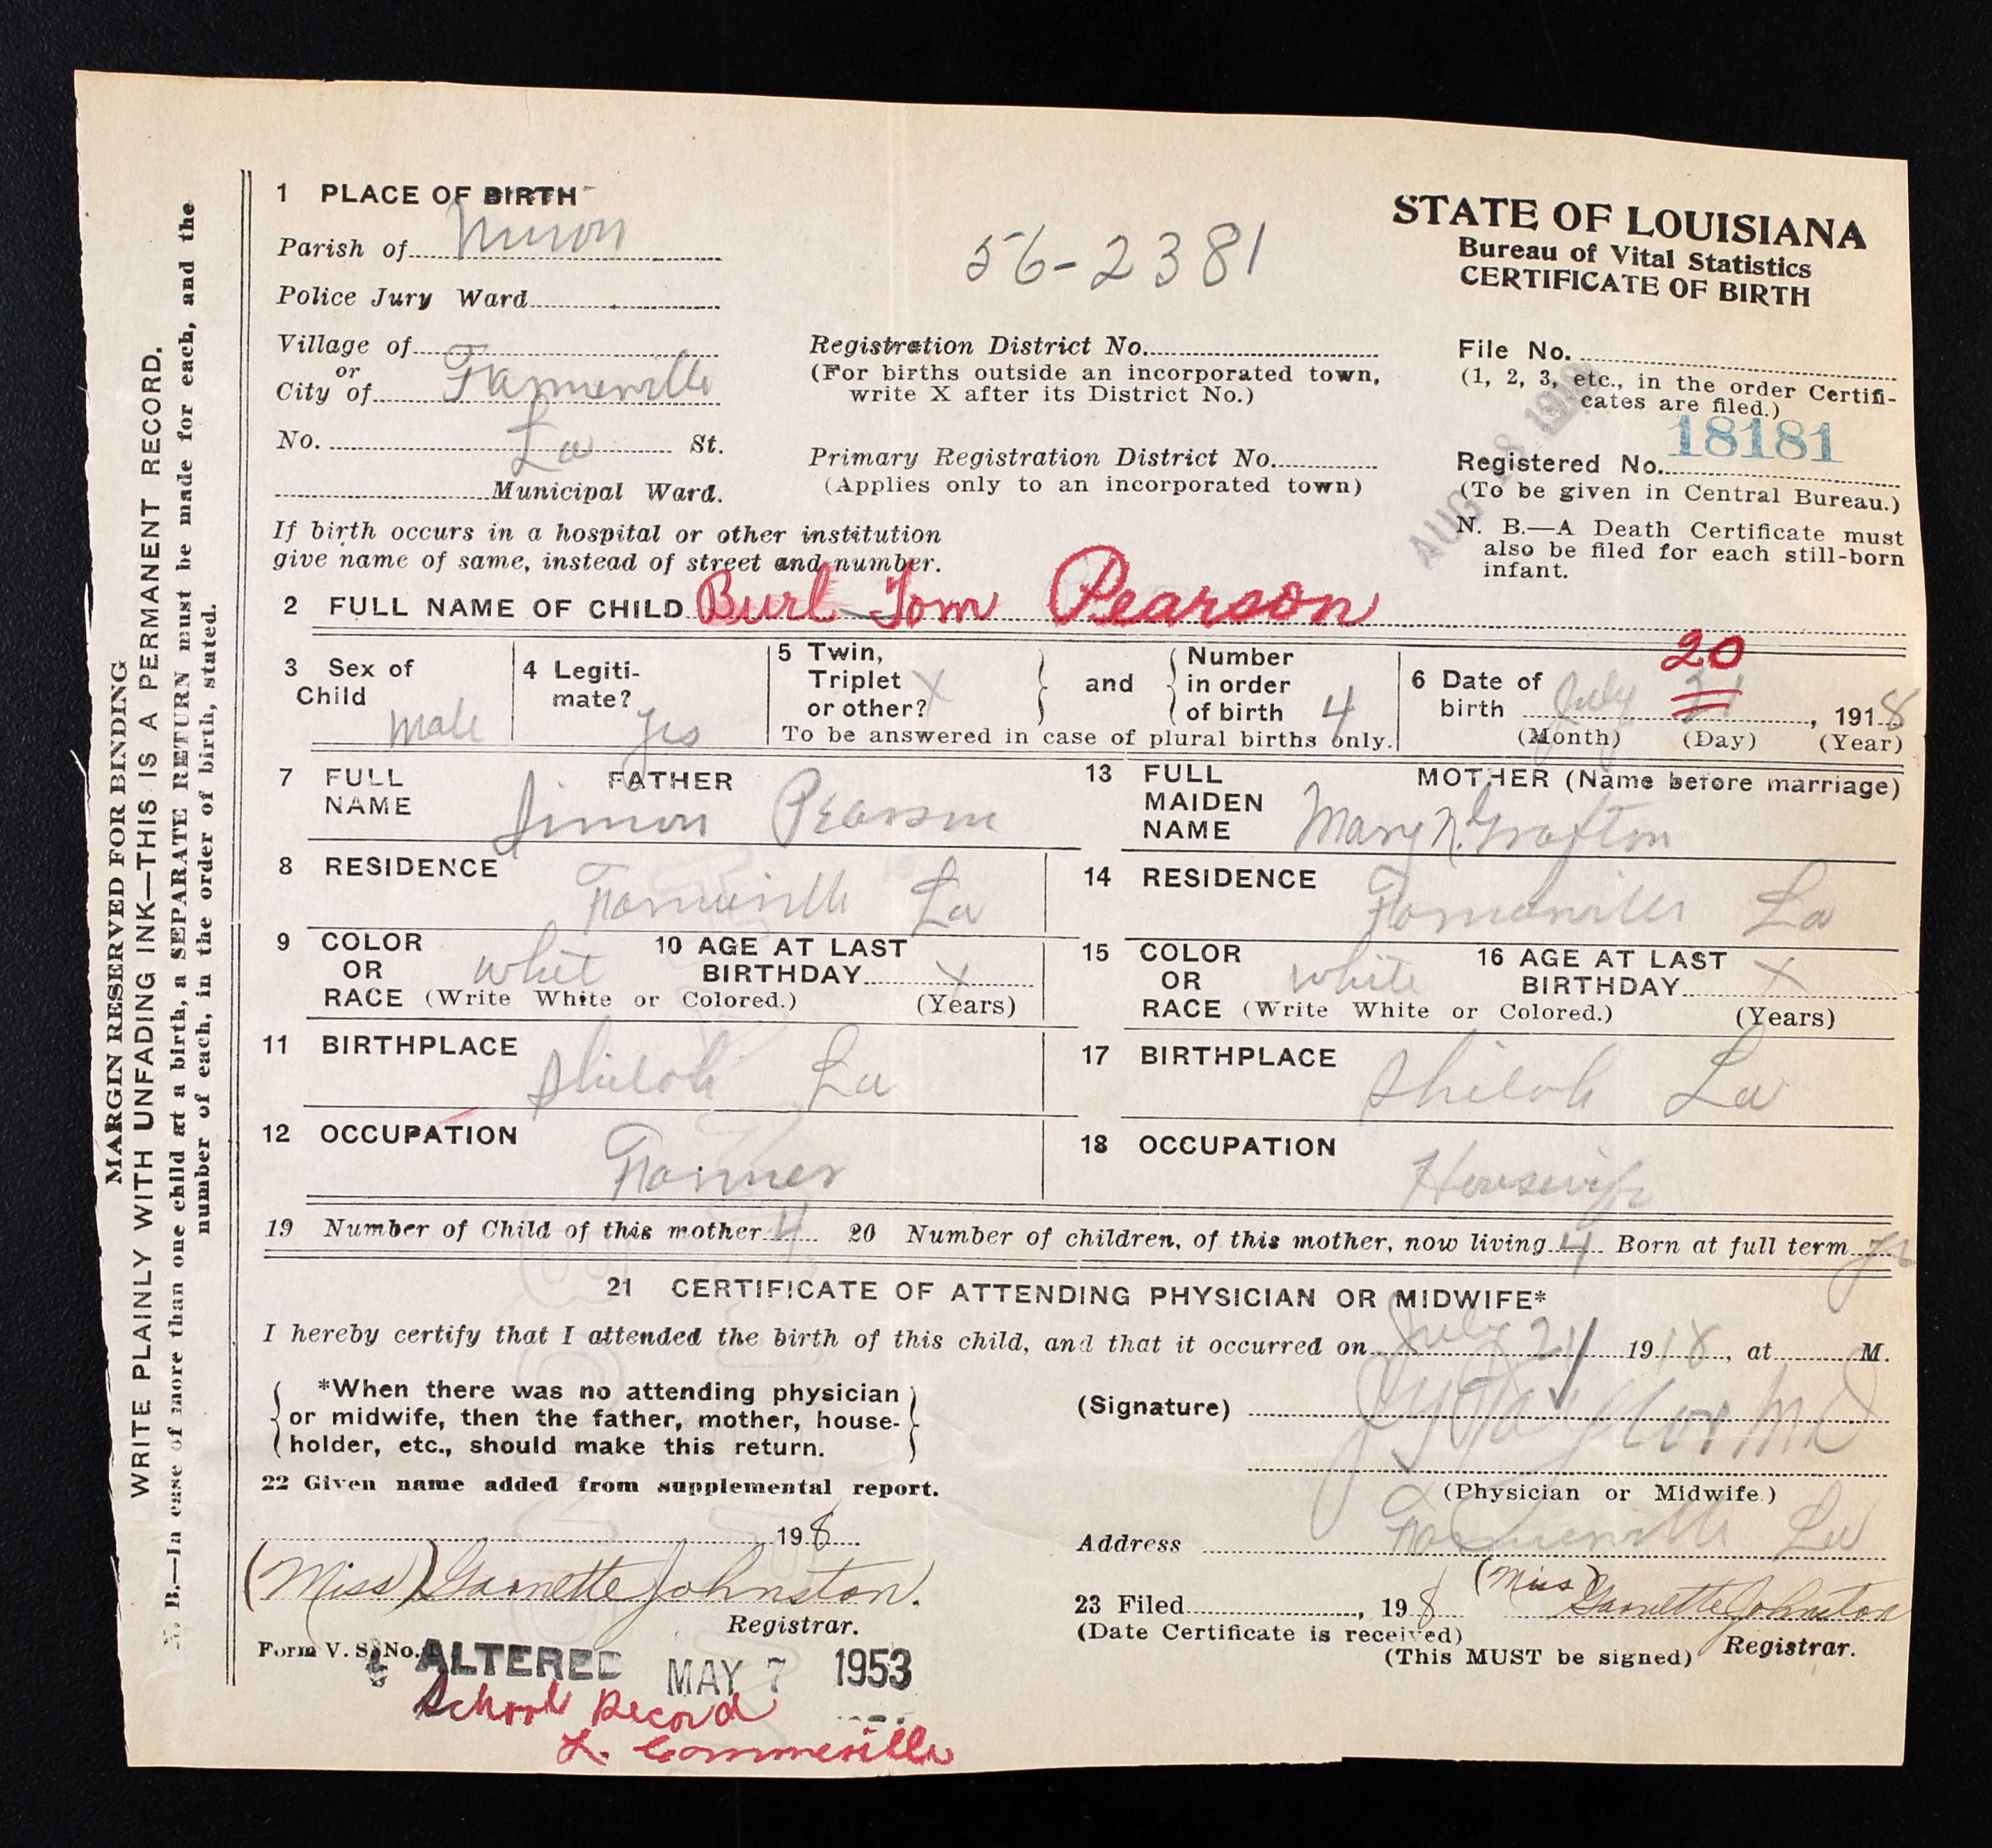 MARGIN RESERVED FOR BINDING
WRITE PLAINLY WITH UNFADING INK—THIS IS A PERMANENT RECORD.
N. B.—In case of more than one child at a birth, a SEPARATE RETURN must be made for each, and the
number of each, in the order of birth, stated.
1 PLACE OF BIRTH
Parish of Union
Police Jury Ward
Village of
or
City of Farmerville
No. La St.
Municipal Ward.
If birth occurs in a hospital or other institution
give name of same, instead of street and number.
56-2381
Registration District No.
(For births outside an incorporated town,
write X after its District No.)
Primary Registration District No.
(Applies only to an incorporated town)
STATE OF LOUISIANA
Bureau of Vital Statistics
CERTIFICATE OF BIRTH
File No.
(1, 2, 3, etc., in the order Certifi-
cates are filed.)
18181
Registered No.
(To be given in Central Bureau.)
AUG 28
N. B.—A Death Certificate must
also be filed for each still-born
infant.
2 FULL NAME OF CHILD Burl Tom Pearson
3 Sex of
Child Male
4 Legiti-
mate? Yes
5 Twin,
Triplet X
or other?
and
Number
in order
of birth 4
To be answered in case of plural births only.
20
6 Date of
birth July 21, 1918
(Month) (Day) (Year)
7 FULL FATHER
NAME Simon Pearson
8 RESIDENCE Farmerville La
9 COLOR
OR whit
RACE (Write White or Colored.)
10 AGE AT LAST
BIRTHDAY X
(Years)
11 BIRTHPLACE Shiloh La
12 OCCUPATION Farmer
13 FULL MOTHER (Name before marriage)
MAIDEN
NAME Mary N. Grafton
14 RESIDENCE Farmerville La
15 COLOR
OR white
RACE (Write White or Colored.)
16 AGE AT LAST
BIRTHDAY X
(Years)
17 BIRTHPLACE Shiloh La
18 OCCUPATION Housewife
19 Number of Child of this mother 4 20 Number of children, of this mother, now living 4 Born at full term
21 CERTIFICATE OF ATTENDING PHYSICIAN OR MIDWIFE*
I hereby certify that I attended the birth of this child, and that it occurred on July 21 1918, at M.
*When there was no attending physician
or midwife, then the father, mother, house-
holder, etc., should make this return.
(Signature) Taylor MD
(Physician or Midwife.)
Address Farmerville La
22 Given name added from supplemental report.
198
(Miss) Garnette Johnston.
Registrar.
23 Filed , 198 (Miss) Garnette Johnston
(Date Certificate is received) Registrar.
(This MUST be signed)
Form V. S. No.
ALTERED MAY 7 1953
School Record